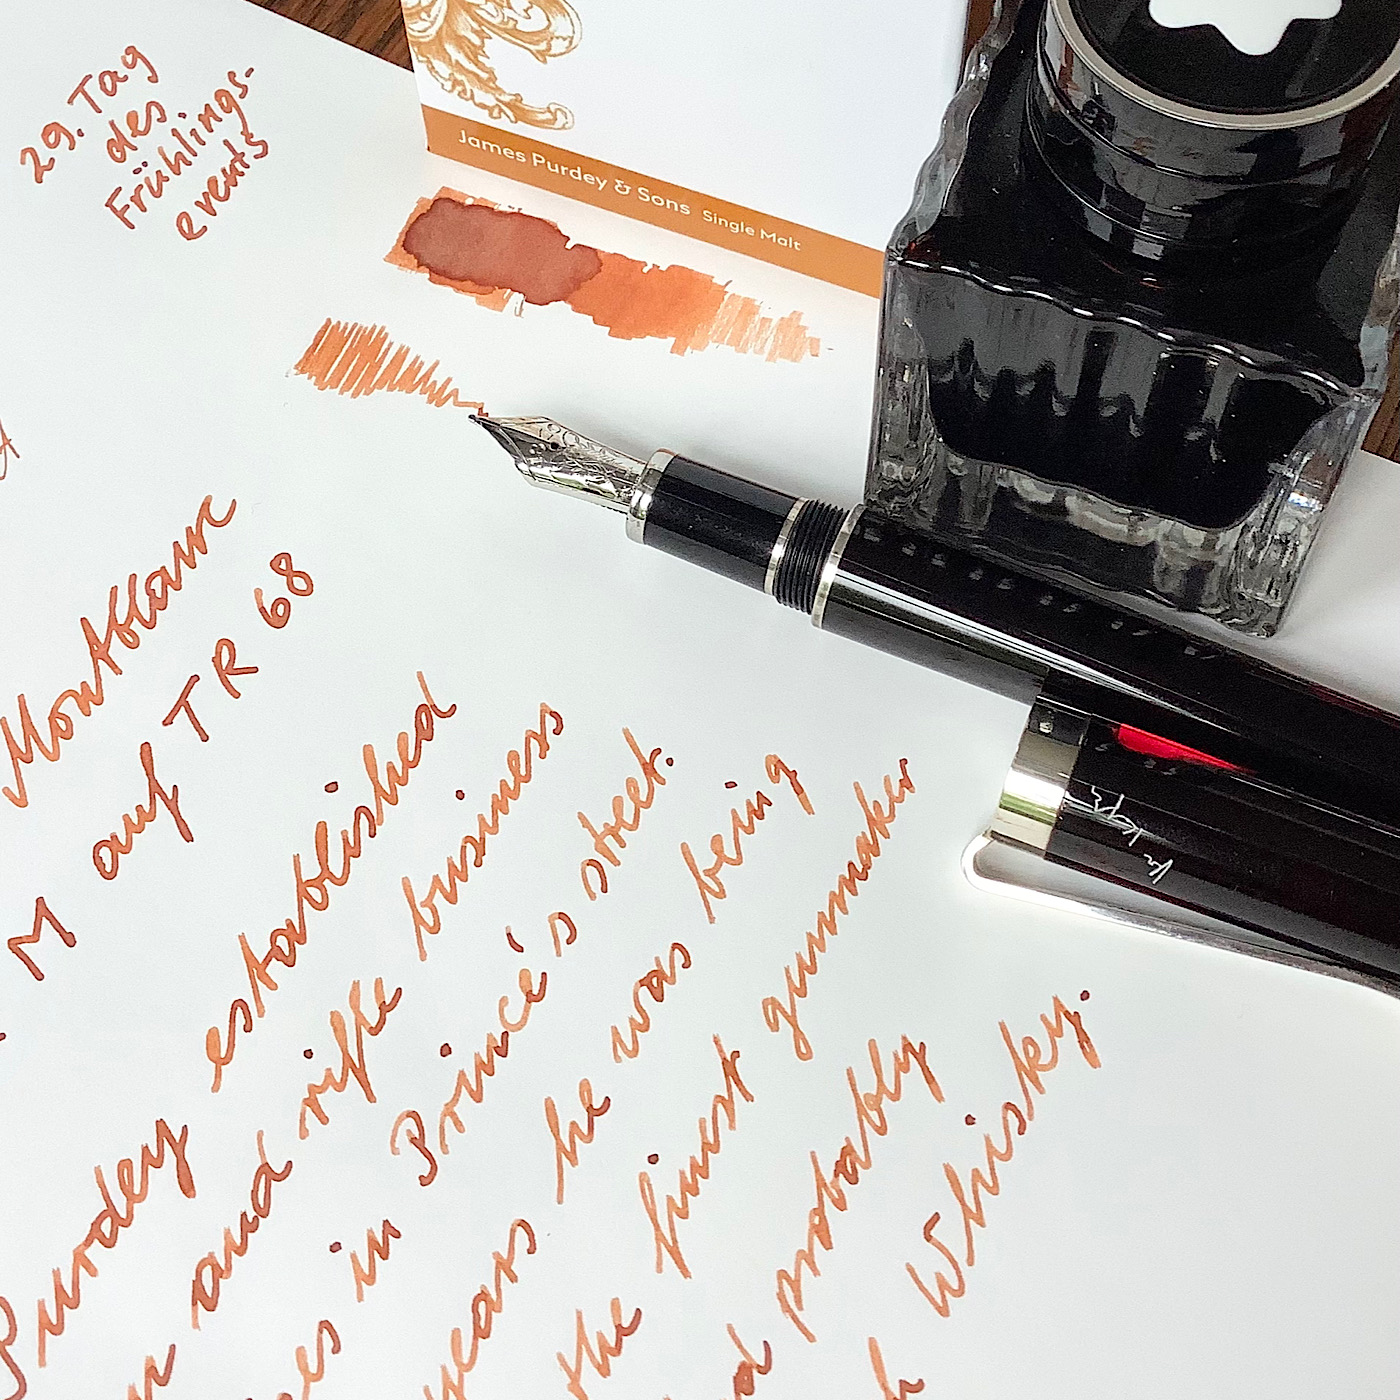 29. Tag
des
Frühlings-
events
James Purdey & Sons Single Malt
Montblanc
M auf TR 68
Purdey established
and rifle business
in Prince's street.
years he was being
the finest gunmaker
probably
Whisky.